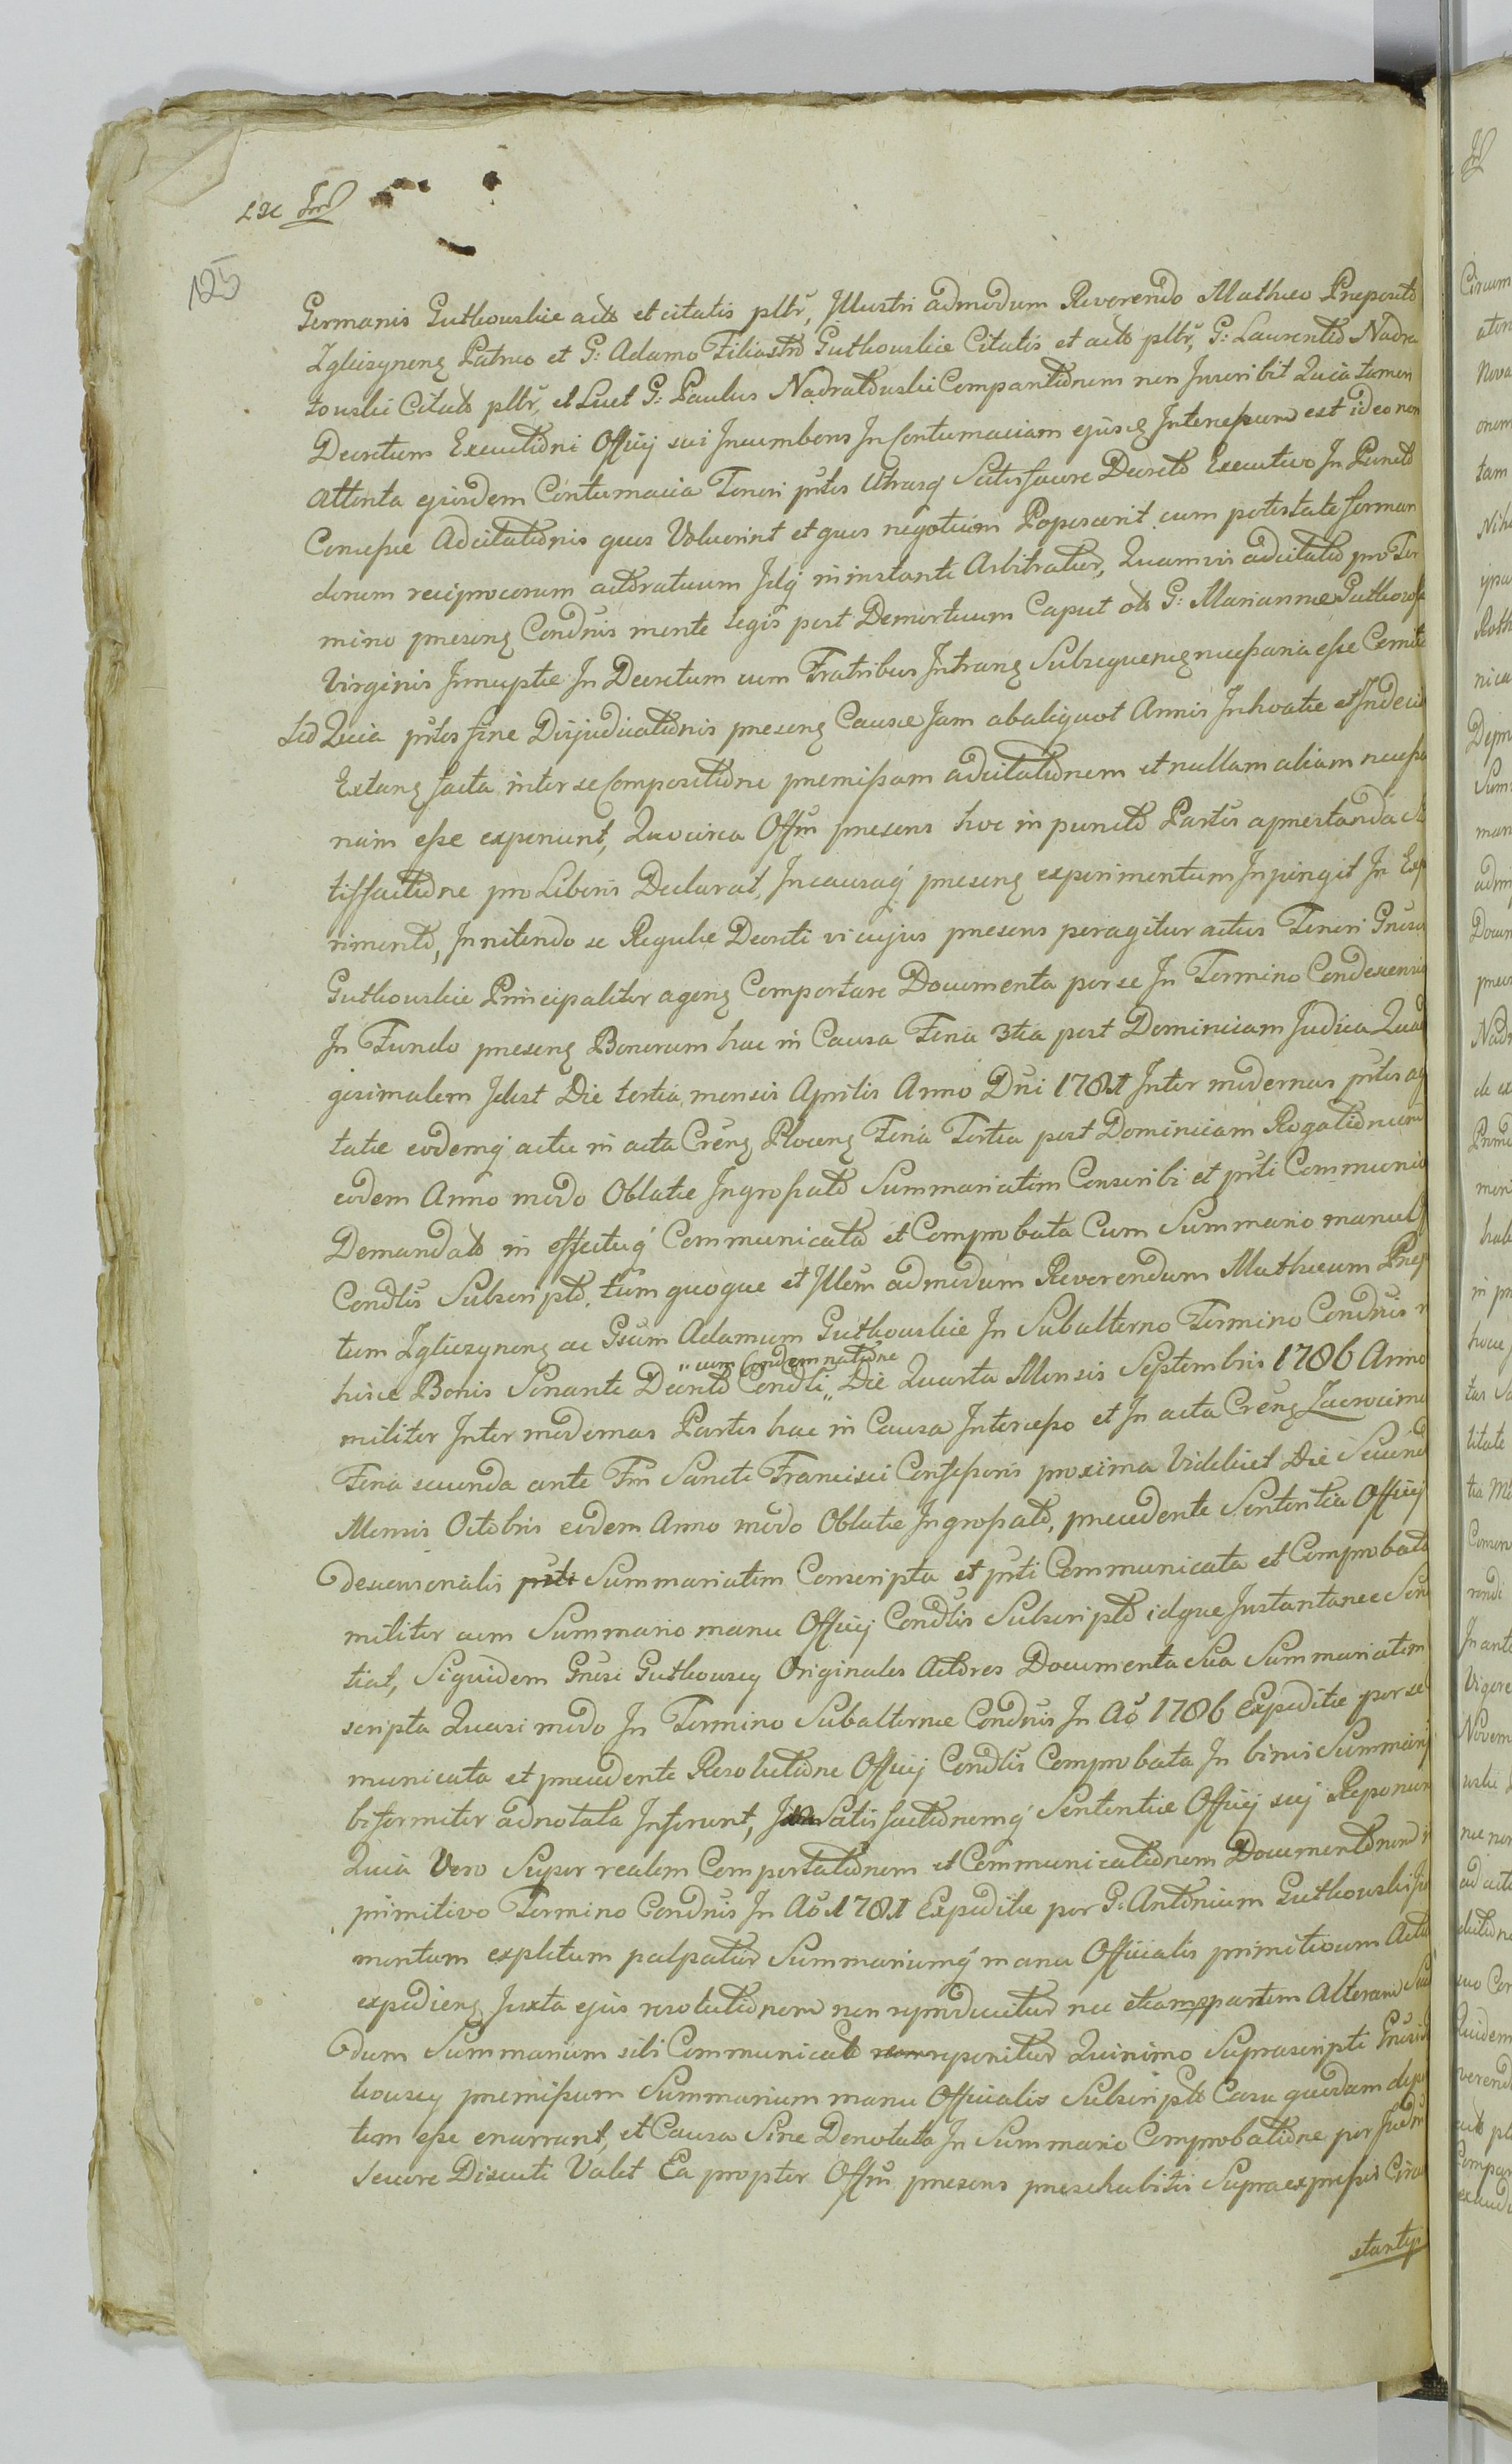 125
Germanis Gutkouskie acto et citatis pltr, Jllustri admodum Reverendo Matheo Preposito
Zglieczynenς Patruo et G: Adamo Filiastro Gutkouskie Citatis et acto pltr, G: Laurentio Nadra
touski Citato pltr, et Licet G: Paulus Nadratouski Comparitionem non Jnscribit Quia tamen
Decretum Executioni Officij sui Jncumbens Jn Contumaciam ejus Jntercessum est ideo non
attenta ejusdem Contumacia Teneri ptes Utrasq Satisfacere Decreto Executivo Jn Puncto
Concessæ Adcitationis quos Voluerint et quos negotium Poposcerit cum potestate forman
dorum reciprocorum actoratuum Jdq in instanti Arbitratur, Quamvis adcitatio pro Ter
mino presenς Condnis mente legis post Demortuum Caput ol: G: Mariannæ Gutkosk
Virginis Jnnuptæ Jn Decretum cum Fratribus Jntranς Subsequenς necessaria esse Cernitu
sed Quia ptes fine Disjudicationis presenς Causæ Jam ab aliquot Annis Jnhoatæ et Jndecis
Extanς facta inter se Compositione premissam adcitationem et nullam aliam necessa
riam esse exponunt, Quocirca Offm presens hoc in puncto Partes apmestanda sa
tisfactione pro Liberis Declarat, Jncausaq presenς experimentum Jnpingit Jn Exp
rimento, Jnnitendo se Regulæ Decreti vi cujus presens peragitur actus Teneri Gnrsos
Gutkouskie Principaliter agenς Comportare Documenta per se Jn Termino Condescensio
Jn Fundo presenς Bonorum hac in Causa Feria 3tia post Dominicam Judica Quad
gesimalem Jdest Die tertia mensis Aprilis Anno Dni 1781 Jnter modernas ptes ag
tatæ eodemq actu in acta Crenς Plocenς Feria Tertia post Dominicam Rogationum
eodem Anno modo Oblatæ Jngrossato Summariatim Conscribi et pti Communica
Demandato in effectuq Communicata et Comprobata Cum Summario manu
Condlis Subscripto. tum quoque et Jllem admodum Reverendum Matheum Prep
tum Zglieczynenς ac Gsum Adamum Gutkouskie Jn Subalterno Termino Condnis
hisce Bonis Sonante Decreto Condli „ cum Condemnatione „ Die Quarta Mensis Septembris 1786 Anno
militer Jnter modernas Partes hac in Causa Jntercesso et Jn acta Crenς Zacrocime
Feria secunda ante Fm Sancti Francisci Confessoris proxima Videlicet Die Secund
Mensis Octobris eodem Anno modo Oblatæ Jngrossato, precedente Sententia Officij
descensorialis Summariatim Conscripta et pti Communicata et Comprobata
militer cum Summario manu Officij Condlis Subscripto idque Jnstantanee Sen
tiat, Siquidem Gnrsi Gutkouscy Originales Actores Documenta Sua Summariatim
scripta Quasi modo Jn Termino Subalternæ Condnis Jn Ao 1786 Expeditæ per se
municata et precedente Resolutione Officij Condlis Comprobata Jn binis Summarij
biformiter adnotata Jnferunt, Satisfactionemq Sententiæ Officij sui Reponun
Quia Vero Super realem Comportationem et Communicationem Documentorum
primitivo Termino Condnis Jn Ao 1781 Expeditæ per G: Antonium Gutkouski Ju
mentum expletum palpatur Summariumq manu Officialis primitivum Actu
expedienς Juxta ejus resolutionem non reproducitur nec etiam partem Alteram
dum Summarium sibi Communicato reponitur Quinimo Suprascripti Gnrsi
kouscy premissum Summarium manu Officialis Subscripto Casu quodam dep
tum esse enarrant, et Causa Sine Denotata Jn Summario Comprobatione per
secure Discuti Valet Ea propter Offm presens prosehabitis Supraexpressis Circu
stantijs